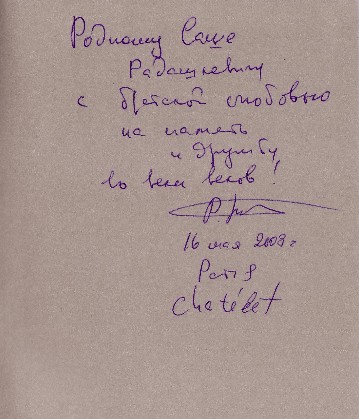 Родному Саше
Радашкевичу
с братской любовью
на память
и дружбу
во веки веков!
16 мая 2009 г
Paris
Chatélet